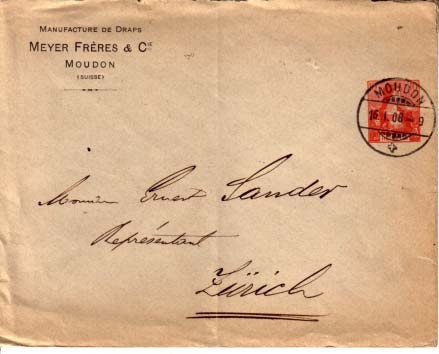 MANUFACTURE DE DRAPS
MEYER FRÈRES & Cie
MOUDON
(SUISSE)
MOUDON
Monsieur Ernest Sander
Représentant
Zürich